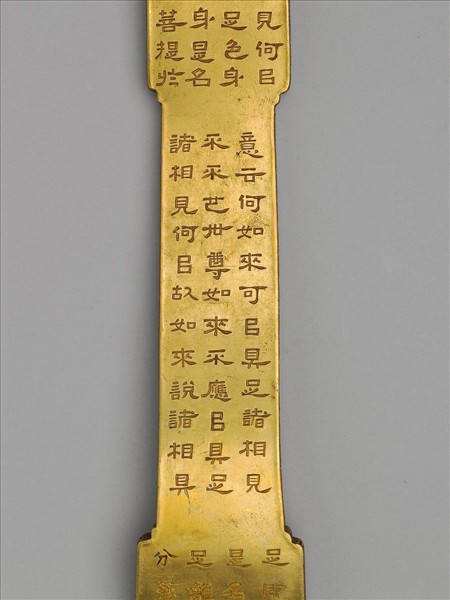 見何㠯
足色身
身是名
菩提於
意云何如來可㠯具足諸相見
不不也世尊如來不應㠯具足
諸相見何㠯故如來說諸相具
足即
是名
足
分